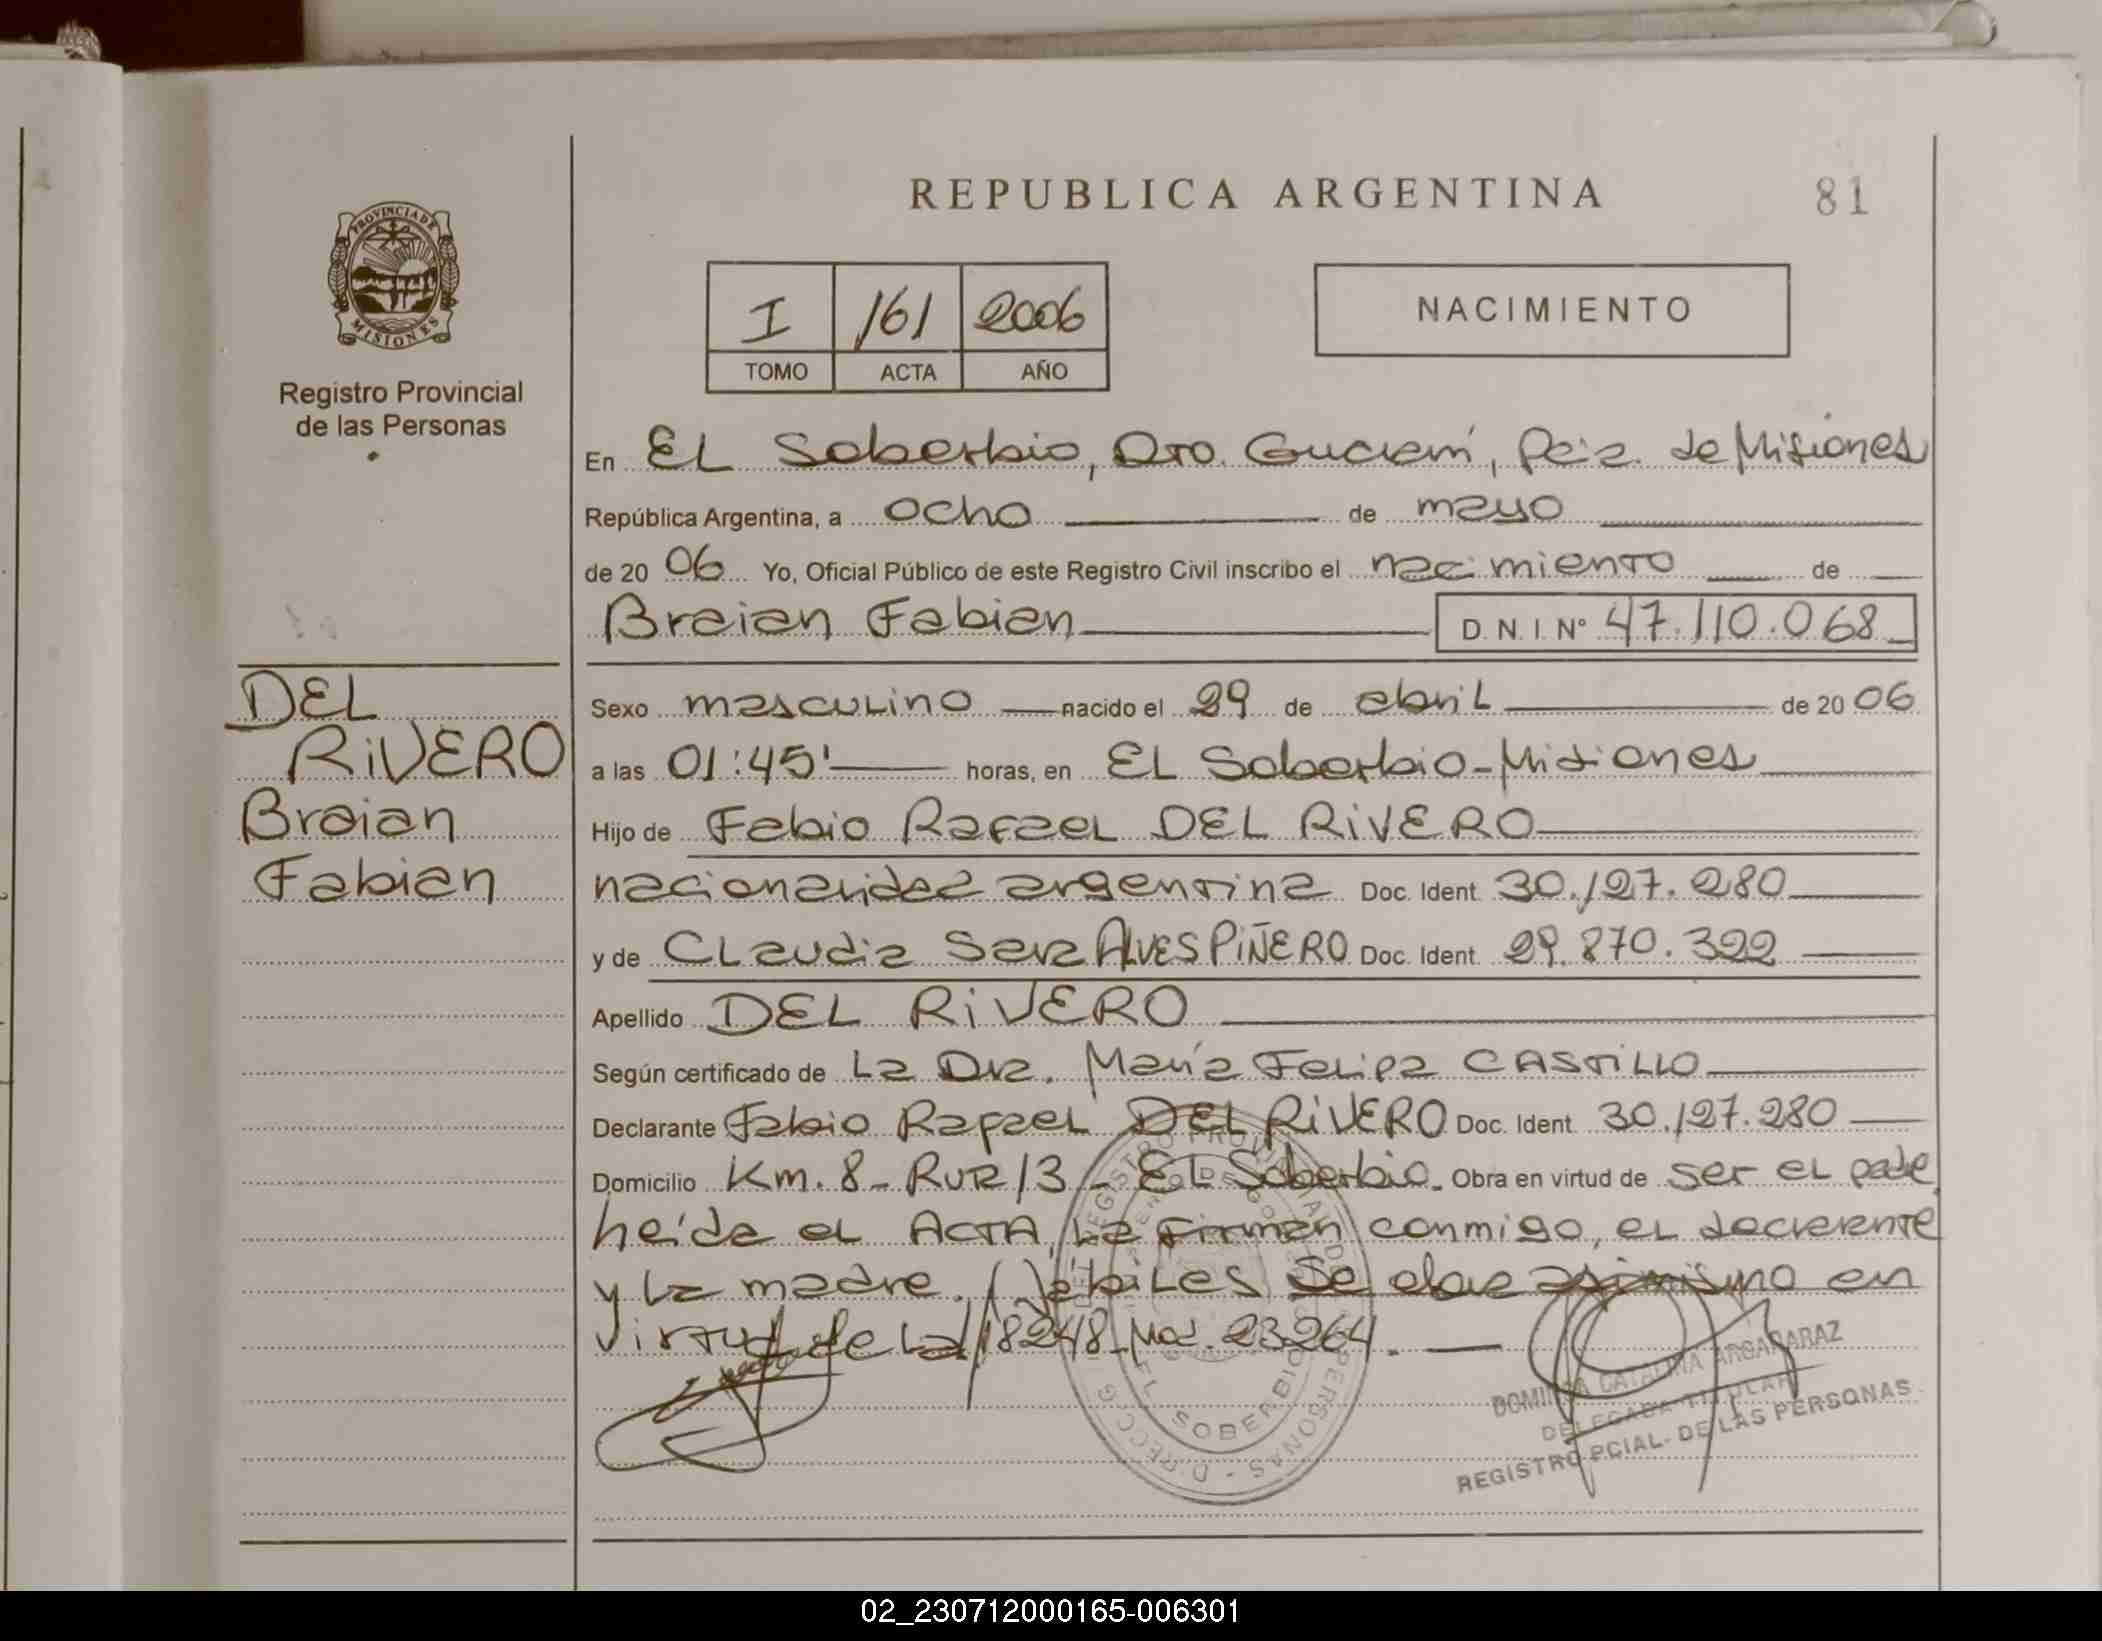 REPUBLICA ARGENTINA
81
PROVINCIA DE
MISIONES
Registro Provincial
de las Personas
I 161 2006
TOMO ACTA AÑO
NACIMIENTO
En EL Soberbio, Dto. Guaraní, Pcia. de Misiones
República Argentina, a ocho de mayo
de 20 06 Yo, Oficial Público de este Registro Civil inscribo el nacimiento de
Braian Fabian D. N. I. N° 47.110.068
DEL
RIVERO
Braian
Fabian
Sexo masculino nacido el 29 de abril de 20 06
a las 01:45' horas, en EL Soberbio - Misiones
Hijo de Fabio Rafael DEL RIVERO
nacionalidad argentina Doc. Ident. 30.127.280
y de Claudia Sara ALVES PIÑERO Doc. Ident. 29.870.322
Apellido DEL RIVERO
Según certificado de La Dra. María Felipa CASTILLO
Declarante Fabio Rafael DEL RIVERO Doc. Ident. 30.127.280
Domicilio Km. 8 - Ruta 13 - EL Soberbio. Obra en virtud de ser el padre
Leída el ACTA, La Firman conmigo, el declarante
y La madre. en
virtud de La 18248 Mod. 23264.
EL SOBERBIO
DOMINGA CATALINA ARGAÑARAZ
DELEGADA TITULAR
REGISTRO PCIAL. DE LAS PERSONAS
02_230712000165-006301